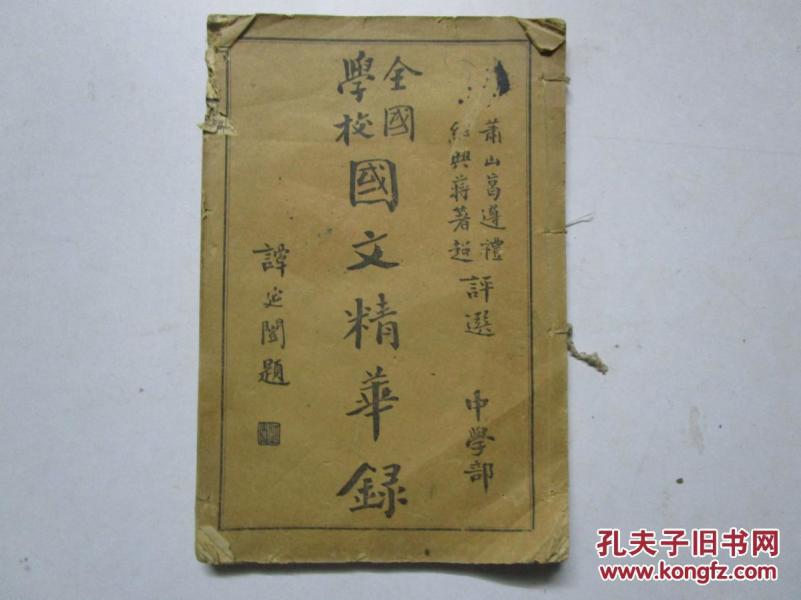 蕭山葛遵禮
紹興蔣著超
評選
中學部
全國
學校
國文精華録
譚延闓題
孔夫子旧书网
www.kongfz.com